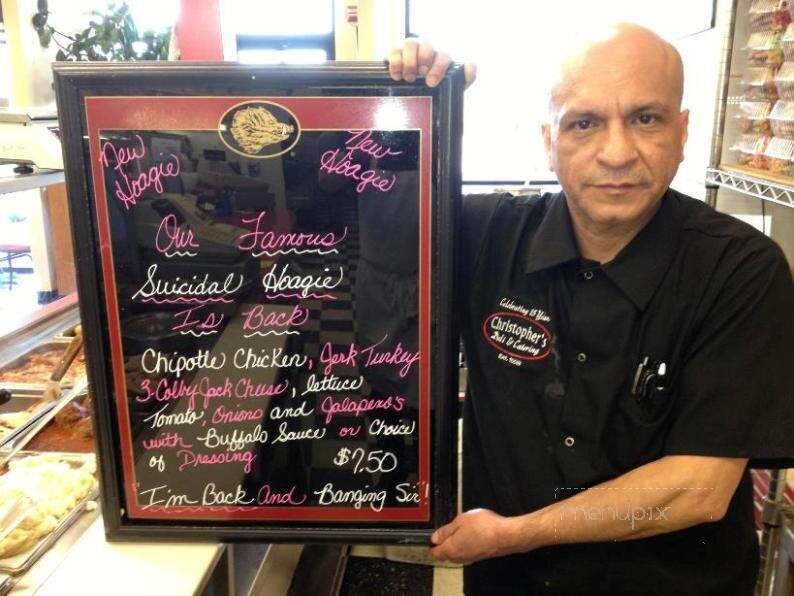 New Hoagie
New Hoagie
Our Famous
Suicidal Hoagie
Is Back
Chipotle Chicken, Jerk Turkey
3-Colby Jack Cheese, lettuce
Tomato, Onions and Jalapeno's
with Buffalo Sauce or Choice
of Dressing $7.50
"I'm Back And Banging Sir"!
Celebrating 15 Years
Christopher's
Deli & Catering
menupix